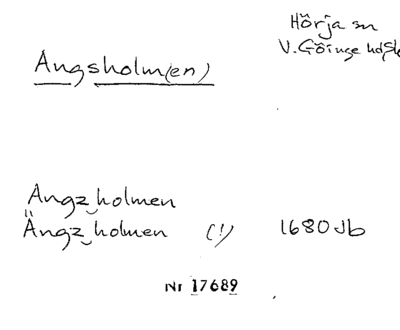 Hörja sn
V. Göinge hd, Sk
Angsholm(en)
Angz holmen
Ängz holmen (!) 1680 Jb
Nr 17689